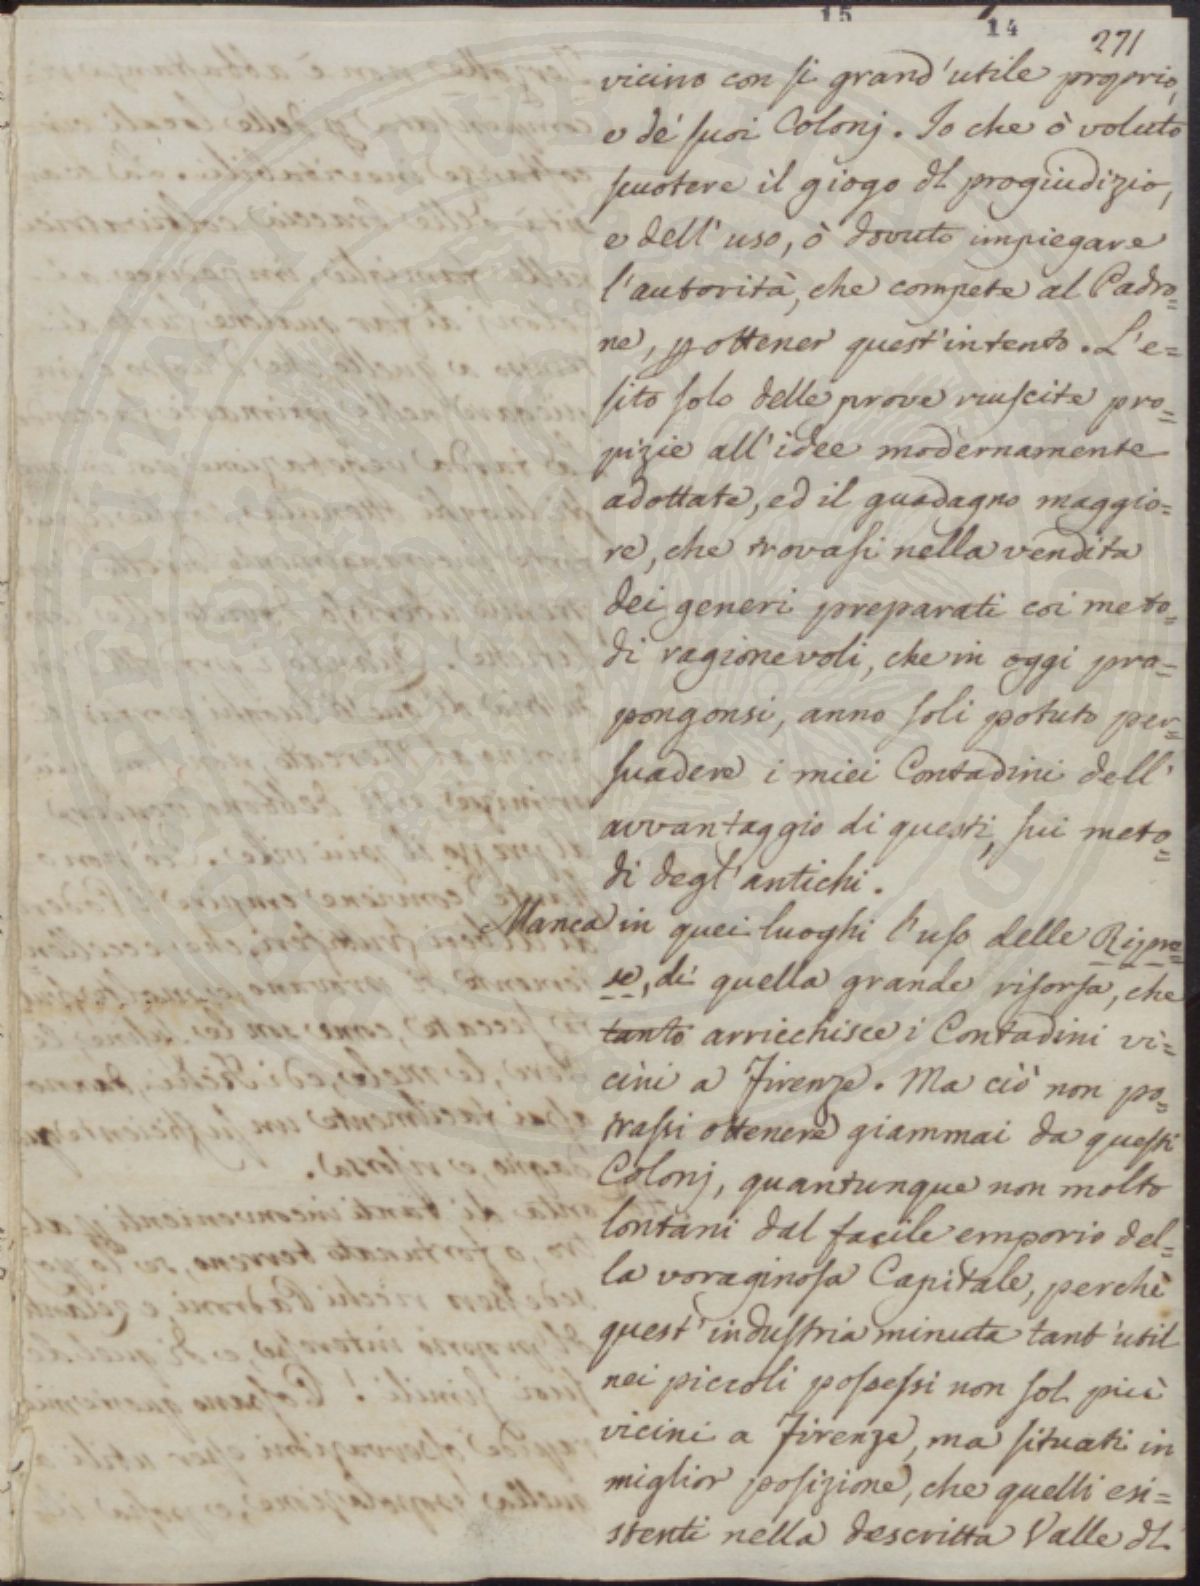 15 14 271
vicino con sì grand'utile proprio,
e de' suoi Colonj. Io che ò voluto
scuotere il giogo dl progiudizio,
e dell'uso, ò dovuto impiegare
l'autorità, che compete al Padro=
ne, p ottener quest'intento. L'e=
sito solo delle prove riuscite pro=
pizie all'idee modernamente
adottate, ed il guadagno maggio=
re, che trovasi nella vendita
dei generi preparati coi meto=
di ragionevoli, che in oggi pra=
pongonsi, anno soli potuto per=
suadere i miei Contadini dell'
avvantaggio di questi, sui meto=
di degl'antichi.
Manca in quei luoghi l'uso delle Ripre=
se, di quella grande risorsa, che
tanto arricchisce i Contadini vi=
cini a Firenze. Ma ciò non po=
trassi ottenere giammai da questi
Colonj, quantunque non molto
lontani dal facile emporio del=
la voraginosa Capitale, perchè
quest'industria minuta tant'util
nei piccoli possessi non sol più
vicini a Firenze, ma situati in
miglior posizione, che quelli esi=
stenti nella descritta Valle dl